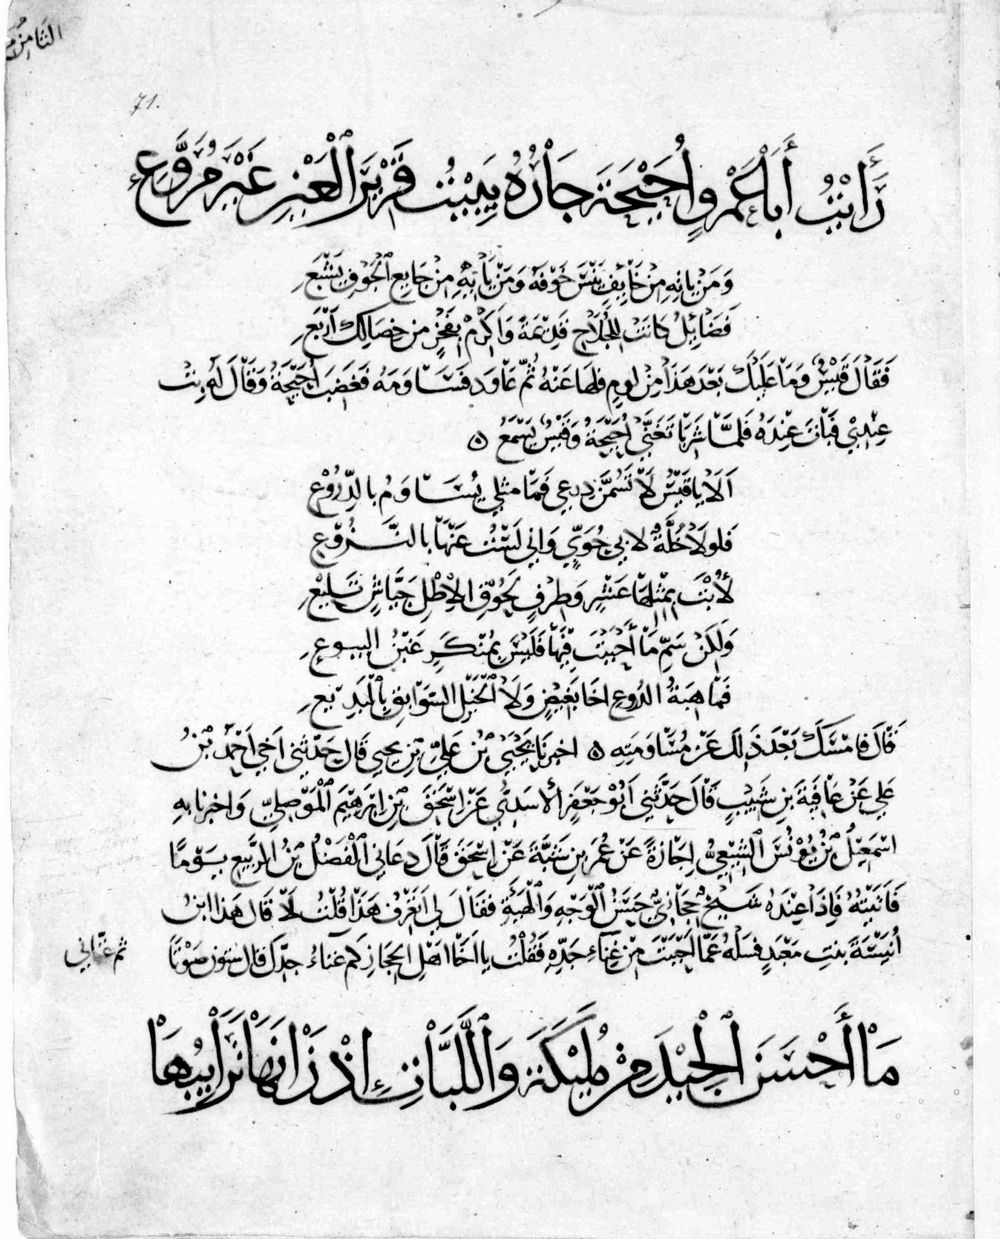 الثامن
71.
رَأَيْتُ أَبَا عَمْرٍو أُحَيْحَةَ جَارُهُ يَبِيْتُ قَرِيْرَ الْعَيْنِ غَيْرَ مُرَوَّعِ
وَمَنْ يَاتِهِ مِنْ خَايِفٍ يَنْسَ خَوْفَهُ وَمَنْ يَاتِهِ مِنْ جَايِعِ الْجَوْفِ يَشْبَعِ
فَضَايِلُ كَانَتْ لِلْجُلَاحِ قَدِيْمَةً وَاَكْرِمْ بِفَخْرٍ مِنْ خِصَالِكَ اَرْبَعِ
فَقَالَ قَيْسٌ وَمَا عَلَيْكَ بَعْدَ هَذَا مِنْ لومٍ فلها عَنْهُ ثُمَّ عَاوَدَ فَسَاوَمَهُ فَغَضِبَ اُحَيْحَةُ وَقَالَ لَهُ بِتْ
عِنْدِيْ فَبَاتَ عِنْدَهُ فَلَمَّا شَرِبَا تَغَنَّى اُحَيْحَةُ وَقَيْسٌ يَسْمَعُ ه
اَلَا يَا قَيْسُ لَا تَسُمَنَّ دِرعي فَمَا مثلي يُسَاوَمُ بالدُّرُوْعِ
فَلَولَا خُلَّةٌ لابي جُوَيٍّ وَاني لَسْتُ عَنْهَا بالنَّزُوْعِ
لَأُبْتَ بِمِثْلِهَا عَشْرٍ وَطِرْفٍ لَحُوْقِ الْاِطْلِ جَيَّاشٍ تَلِيْعِ
وَلَكِنْ سَمِّ مَا أَحْبَبْتَ فِيْهَا فَلَيْسَ بِمُنْكَرٍ غَبْنُ البيوع
فَمَا هِبَةُ الدُّرُوعِ اخَا بَغِيضٍ وَلَا الْخَيْلِ السَّوَابِقِ بِالْبَدِيعِ
قَالَ فَامْسَكَ بَعْدَ ذَلِكَ عَنْ مُسَاوَمَتِهِ ه اخبرنا يَحْيَى بْنُ عَلِيِّ بْنِ يحيى قَالَ حَدَّثَنِي اَخِي اَحْمَدُ بْنُ
عَلِي عَنْ عَافِيَةَ بنِ شَبِيْبٍ قَالَ حَدَّثَنِي اَبُوْ جَعْفَرٍ الأَسَدِيُّ عَنْ اِسْحَقَ بْنِ اِبْرَهِيْمَ الْمَوْصِلِيِّ وَاخبرنا بِهِ
اِسْمَعِيْلُ بْنُ يُوْنُسَ الشِّيْعِيُّ اِجَازَةً عَنْ عُمَرَ بنِ شَبَّةَ عَنْ اِسْحَقَ قَالَ دَعَانِي الْفَضْلُ بْنُ الرَّبِيعِ يَوْمًا
فَاَتَيْتُهُ فَاِذَا عِنْدَهُ شَيْخٌ حِجَازِيٌّ حَسَنُ الْوَجْهِ وَالْهَيْئَةِ فَقَالَ لِي اَتَعْرِفُ هَذَا قُلْتُ لَا قَالَ هَذَا ابْنُ
اُنَيْسَةَ بنتِ مَعْبَدٍ فَسَلْهُ عَمَّا اَحْبَبْتَ مِنْ غِنَاءِ جَدِّهِ فَقُلْتُ يا اخَا اهْلِ الْحِجَازِ كَم غناءُ جَدِّكَ قال ستون صَوْتًا ثم غنّاني
مَا أَحْسَنَ الْجِيْدَ مِنْ مُلَيْكَةَ وَاللَّبَّاتِ اِذْ زَانَهَا تَرَايِبُهَا